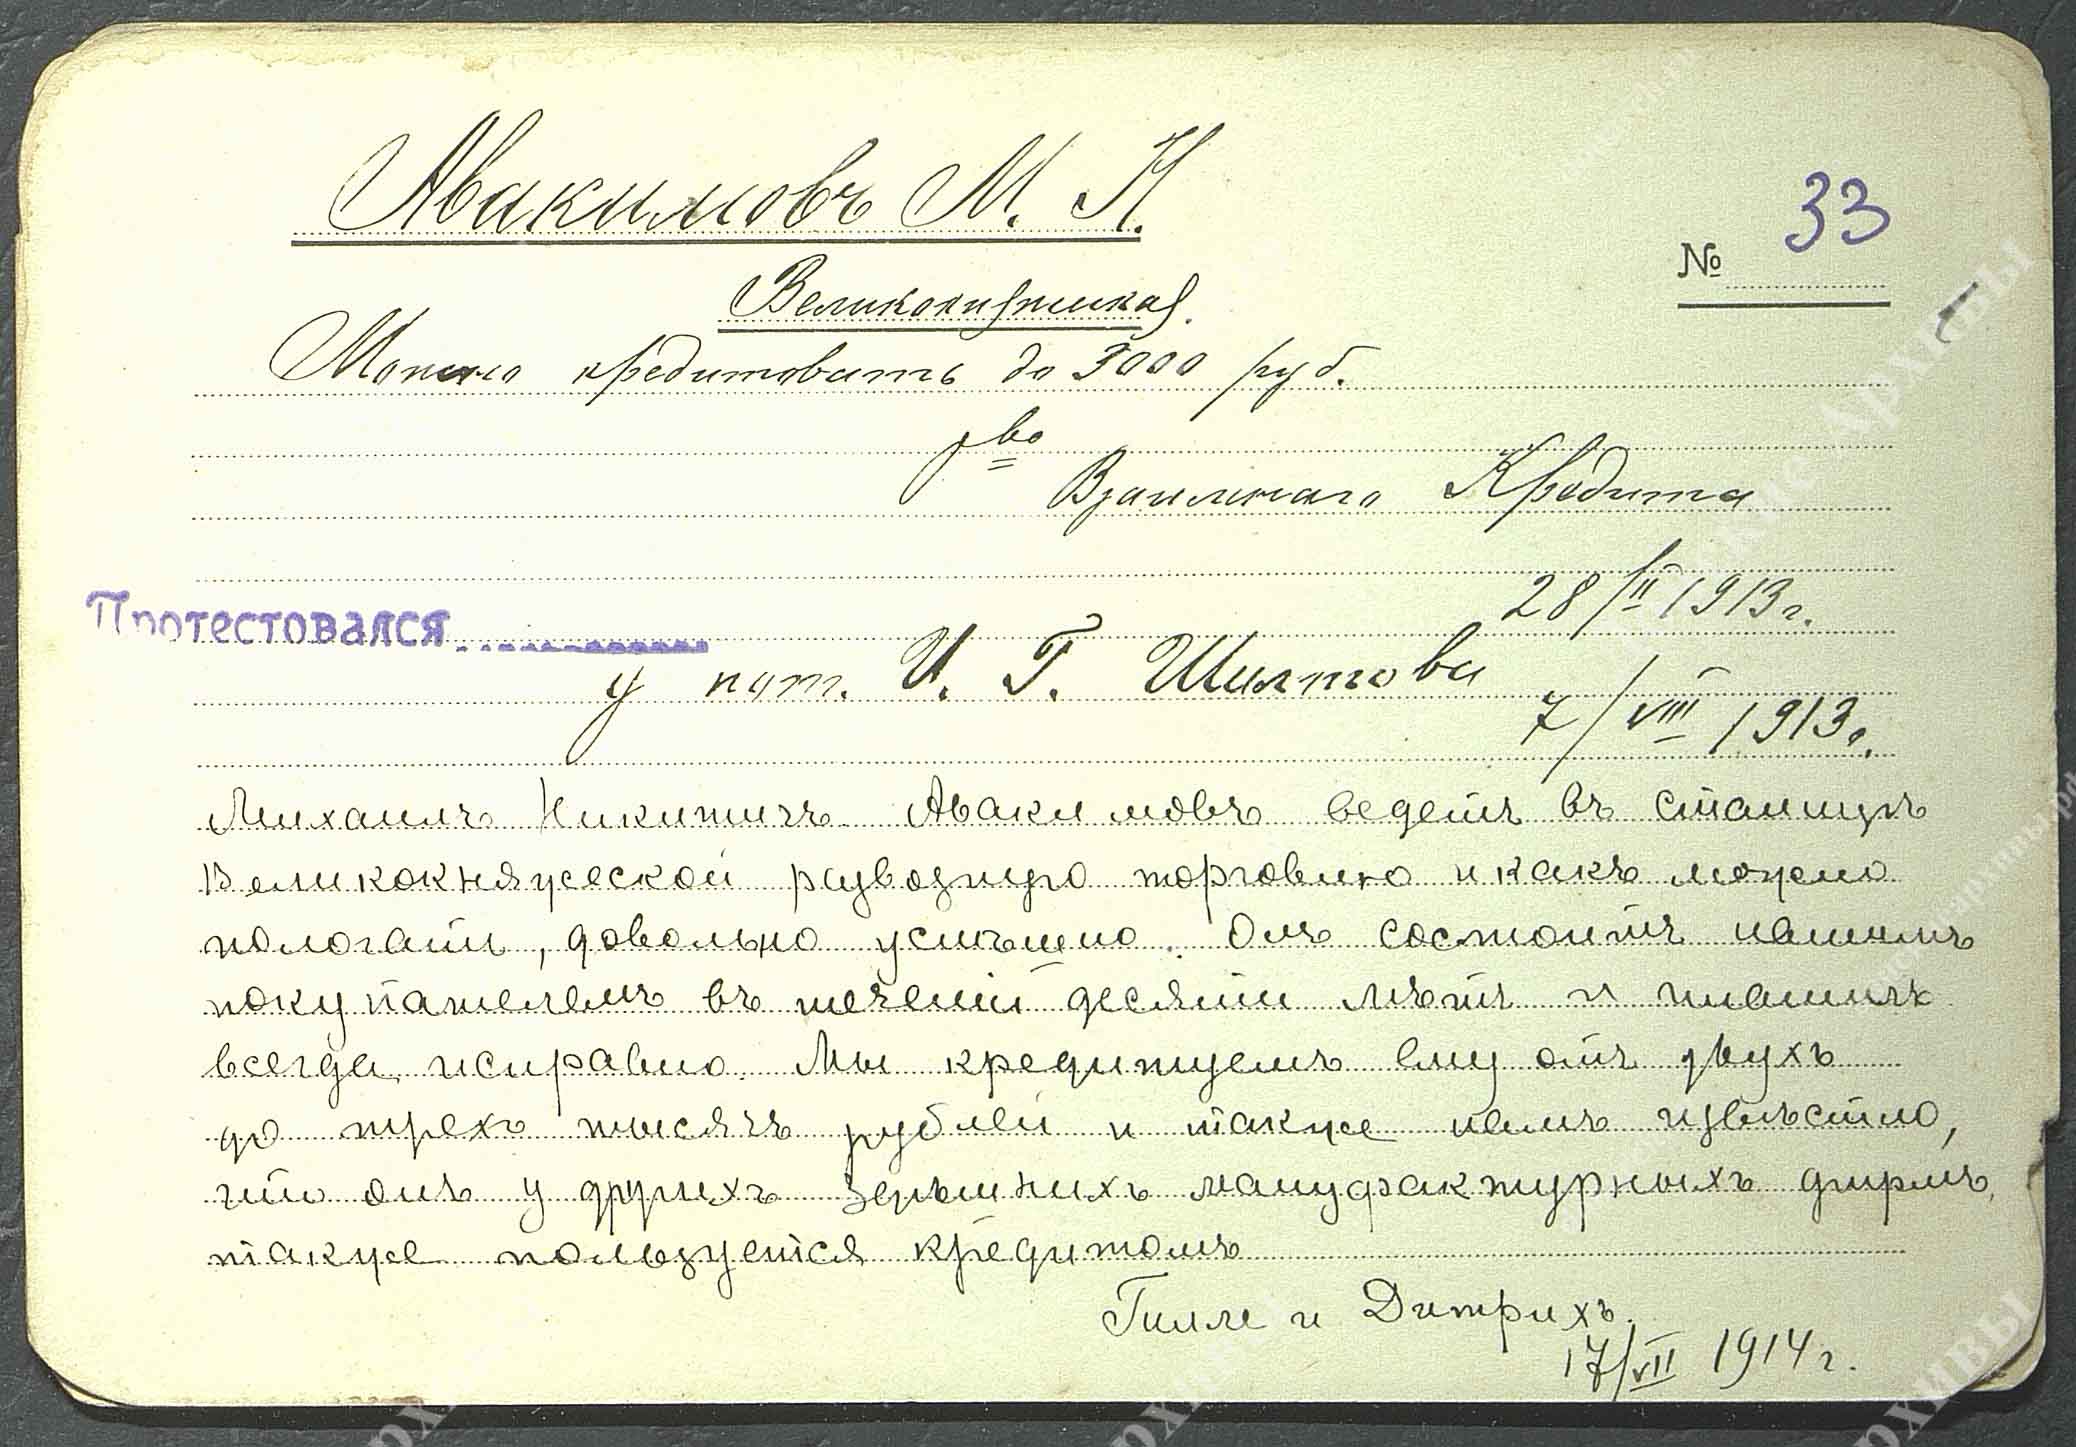 Авакимовъ М. Н.
№ 33
Великокняжеская.
Можно кредитовать до 3000 руб.
Взаимнаго Кредита
28/II 1913 г.
Протестовался
у нот. И. Г. Шилтова
7/VIII 1913 г.
Михаилъ Никитичъ Авакимовъ ведетъ въ станицѣ
Великокняжеской развозную торговлю и какъ можно
пологать, довольно успѣшно. Онъ состоитъ нашимъ
покупателемъ въ теченіи десяти лѣтъ и платилъ
всегда исправно. Мы кредитуемъ ему отъ двухъ
до трехъ тысячъ рублей и также намъ извѣстно,
что онъ у другихъ здѣшнихъ мануфактурныхъ фирмъ
также пользуется кредитомъ
Гилле и Дитрихъ.
17/VII 1914 г.